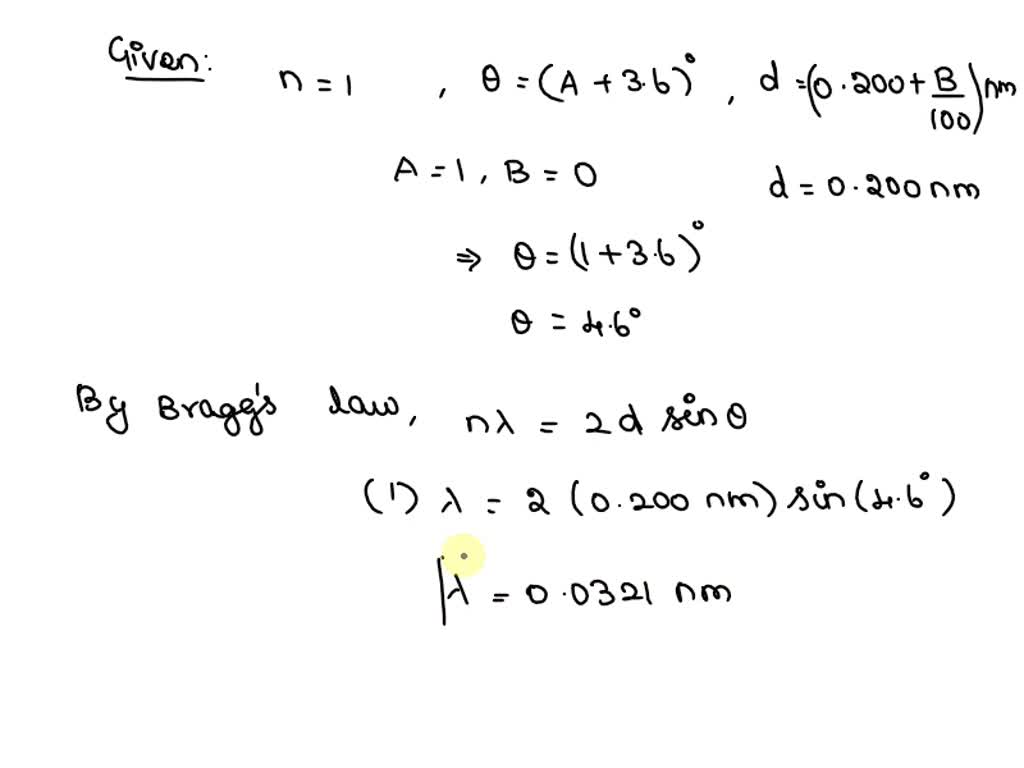 Given: n = 1 , θ = (A + 3.6)° , d = (0.200 + B/100) nm
A = 1 , B = 0 d = 0.200 nm
⇒ θ = (1 + 3.6)°
θ = 4.6°
By Bragg's law, nλ = 2d sinθ
(1) λ = 2 (0.200 nm) sin(4.6°)
λ = 0.0321 nm